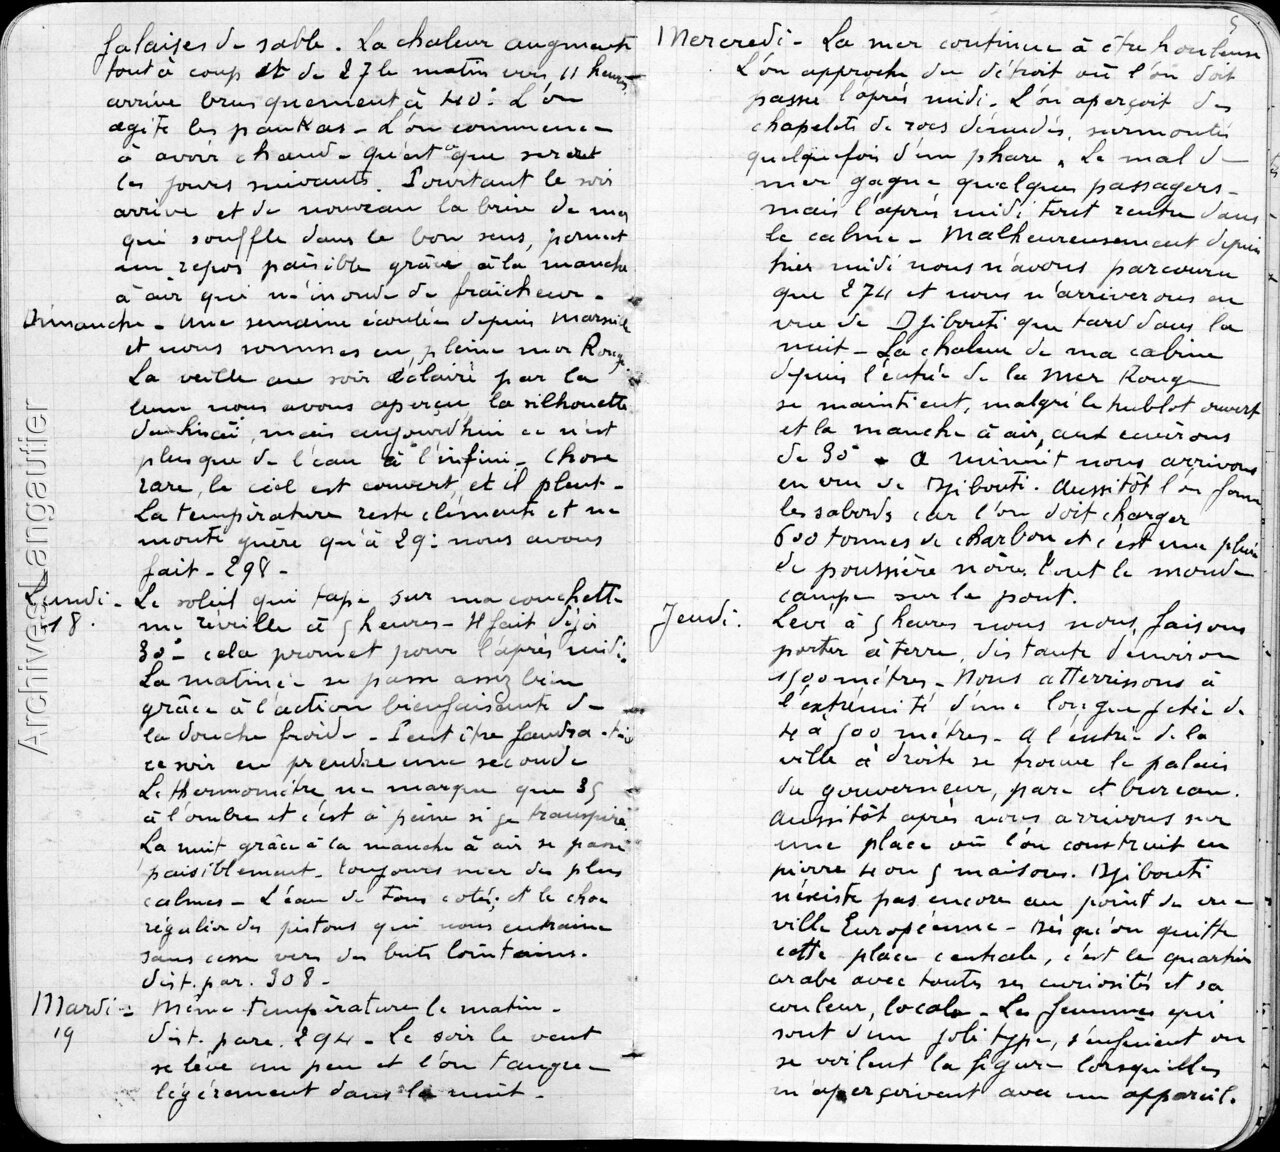 falaises de sable. La chaleur augmente
tout à coup et de 27 le matin vers 11 heures
arrive brusquement à 40°. L'on
agite les pankas - L'on commence
à avoir chaud - qu'est ce que seront
les jours suivants. Pourtant le soir
arrive et de nouveau la brise de mer
qui souffle dans le bon sens, permet
un repos paisible grâce à la manche
à air qui m'inonde de fraîcheur.
Dimanche - Une semaine écoulée depuis Marseille
et nous sommes en pleine mer Rouge
La veille au soir éclairé par la
lune nous avons aperçu la silhouette
du Sinaï, mais aujourd'hui ce n'est
plus que de l'eau à l'infini - Chose
rare, le ciel est couvert, et il pleut -
La température reste clémente et ne
monte guère qu'à 29°: nous avons
fait - 298 -
Lundi - Le soleil qui tape sur ma couchette
18. me réveille à 5 heures - Il fait déjà
30° - cela promet pour l'après midi.
La matinée se passe assez bien
grâce à l'action bienfaisante de
la douche froide - Peut être faudra-t-il
ce soir en prendre une seconde
Le thermomètre ne marque que 35
à l'ombre et c'est à peine si je transpire.
La nuit grâce à la manche à air se passe
paisiblement. toujours mer des plus
calmes - L'eau de tous cotés, et le choc
régulier des pistons qui nous entraine
sans cesse vers des buts lointains.
dist. par. 308 -
Mardi - Même température le matin -
19 dist. parc. 294 - Le soir le vent
se lève un peu et l'on tangue
légérement dans la nuit -
5
Mercredi - La mer continue à être houleuse
L'on approche du détroit où l'on doit
passer l'après midi - L'on aperçoit des
chapelets de rocs dénudés, surmontés
quelquefois d'un phare. Le mal de
mer gagne quelques passagers -
mais l'après midi tout rentre dans
le calme - Malheureusement depuis
hier midi nous n'avons parcouru
que 274 et nous n'arriverons en
vue de Djibouti que tard dans la
nuit - La chaleur de ma cabine
depuis l'entrée de la Mer Rouge
se maintient, malgré le hublot ouvert
et la manche à air, aux environs
de 30° - A minuit nous arrivons
en vue de Djibouti. Aussitôt l'on ferme
les sabords car l'on doit charger
600 tonnes de charbon et c'est une pluie
de poussière noire. Tout le monde
campe sur le pont.
Jeudi. Levé à 5 heures nous nous faisons
porter à terre, distante d'environ
1500 mètres - Nous atterrissons à
l'extrémité d'une longue jetée de
4 à 500 mètres - A l'entrée de la
ville à droite se trouve le palais
du gouverneur, parc et bureau.
Aussitôt après nous arrivons sur
une place où l'on construit en
pierre 4 ou 5 maisons. Djibouti
n'existe pas encore au point de vue
ville Européenne - Dès qu'on quitte
cette place centrale, c'est le quartier
arabe avec toutes ses curiosités et sa
couleur locale - Les femmes qui
sont d'un joli type, s'enfuient ou
se voilent la figure lorsqu'elles
m'aperçoivent avec un appareil.
Archives Langautier